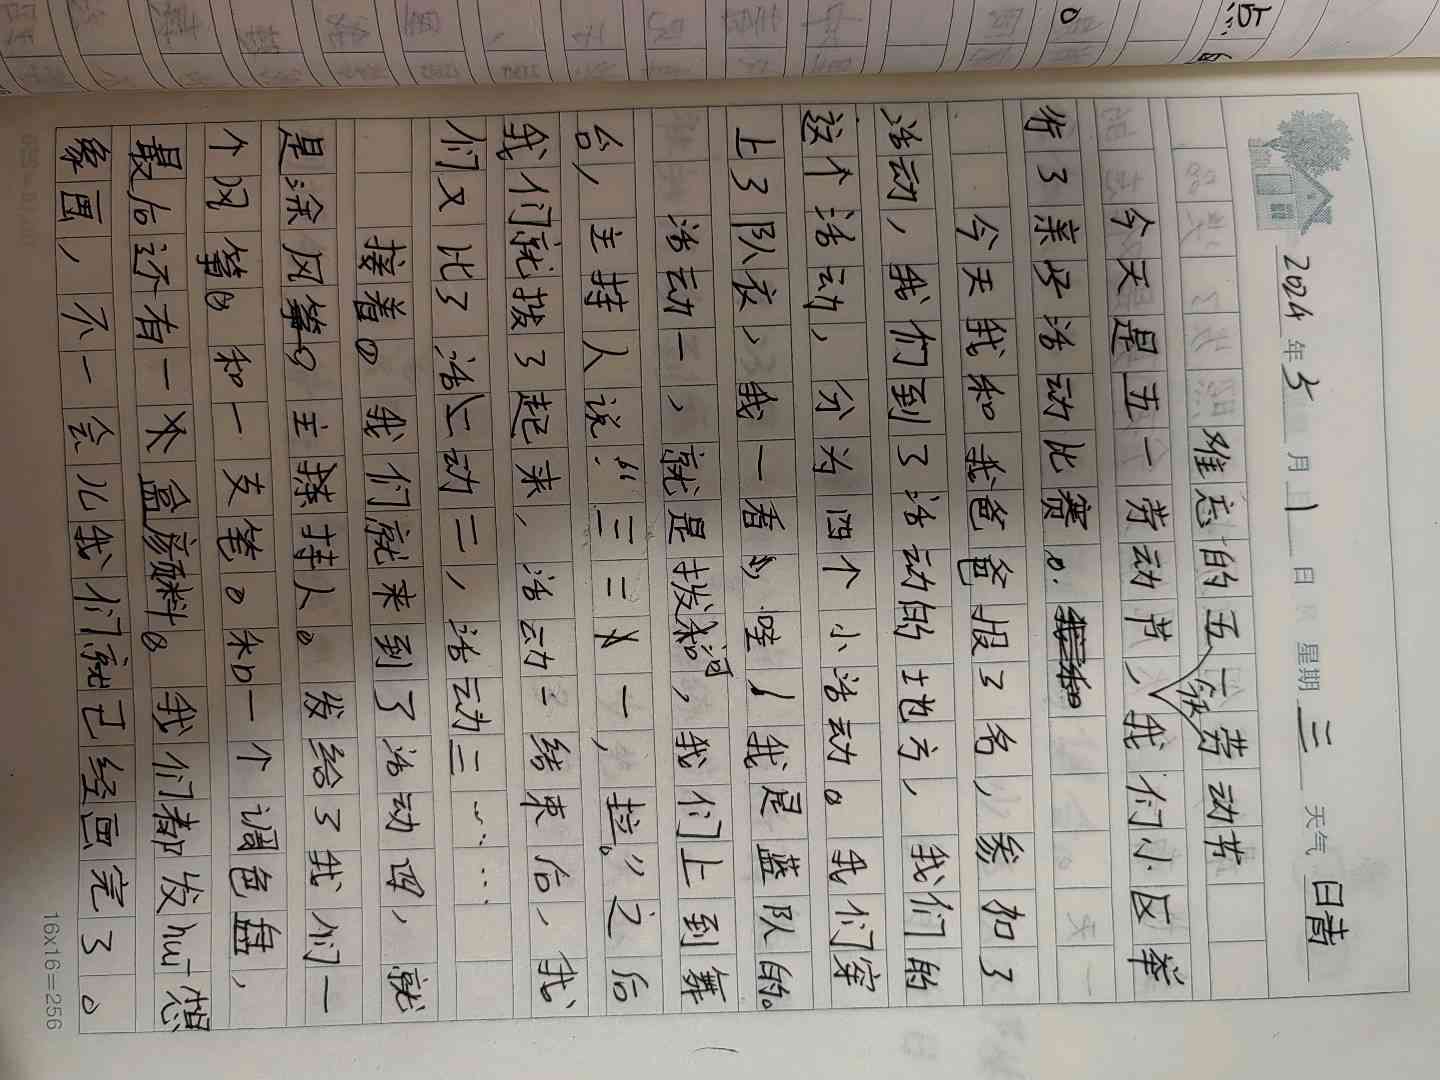 2024年5月1日 星期三 天气 日青
难忘的五一劳动节
今天是五一劳动节，我们小区举
作了亲子活动比赛。
今天我和我爸爸报了名，参加了
活动，我们到了活动的地方，我们的
这个活动，分为四个小活动。我们穿
上了队衣，我一看，哇！我是蓝队的。
活动一，就是拔河，我们上到舞
台，主持人说：“三二一，拉。”之后
我们就拔了起来，活动一结束后，我
们又比了活动二，活动三……
接着。我们就来到了活动四，就
是涂风筝。主持人。发给了我们一
个风筝。和一支笔。和一个调色盘，
最后还有一盒颜料。我们都发hui想
象画，不一会儿我们就已经画完了。
16x16=256